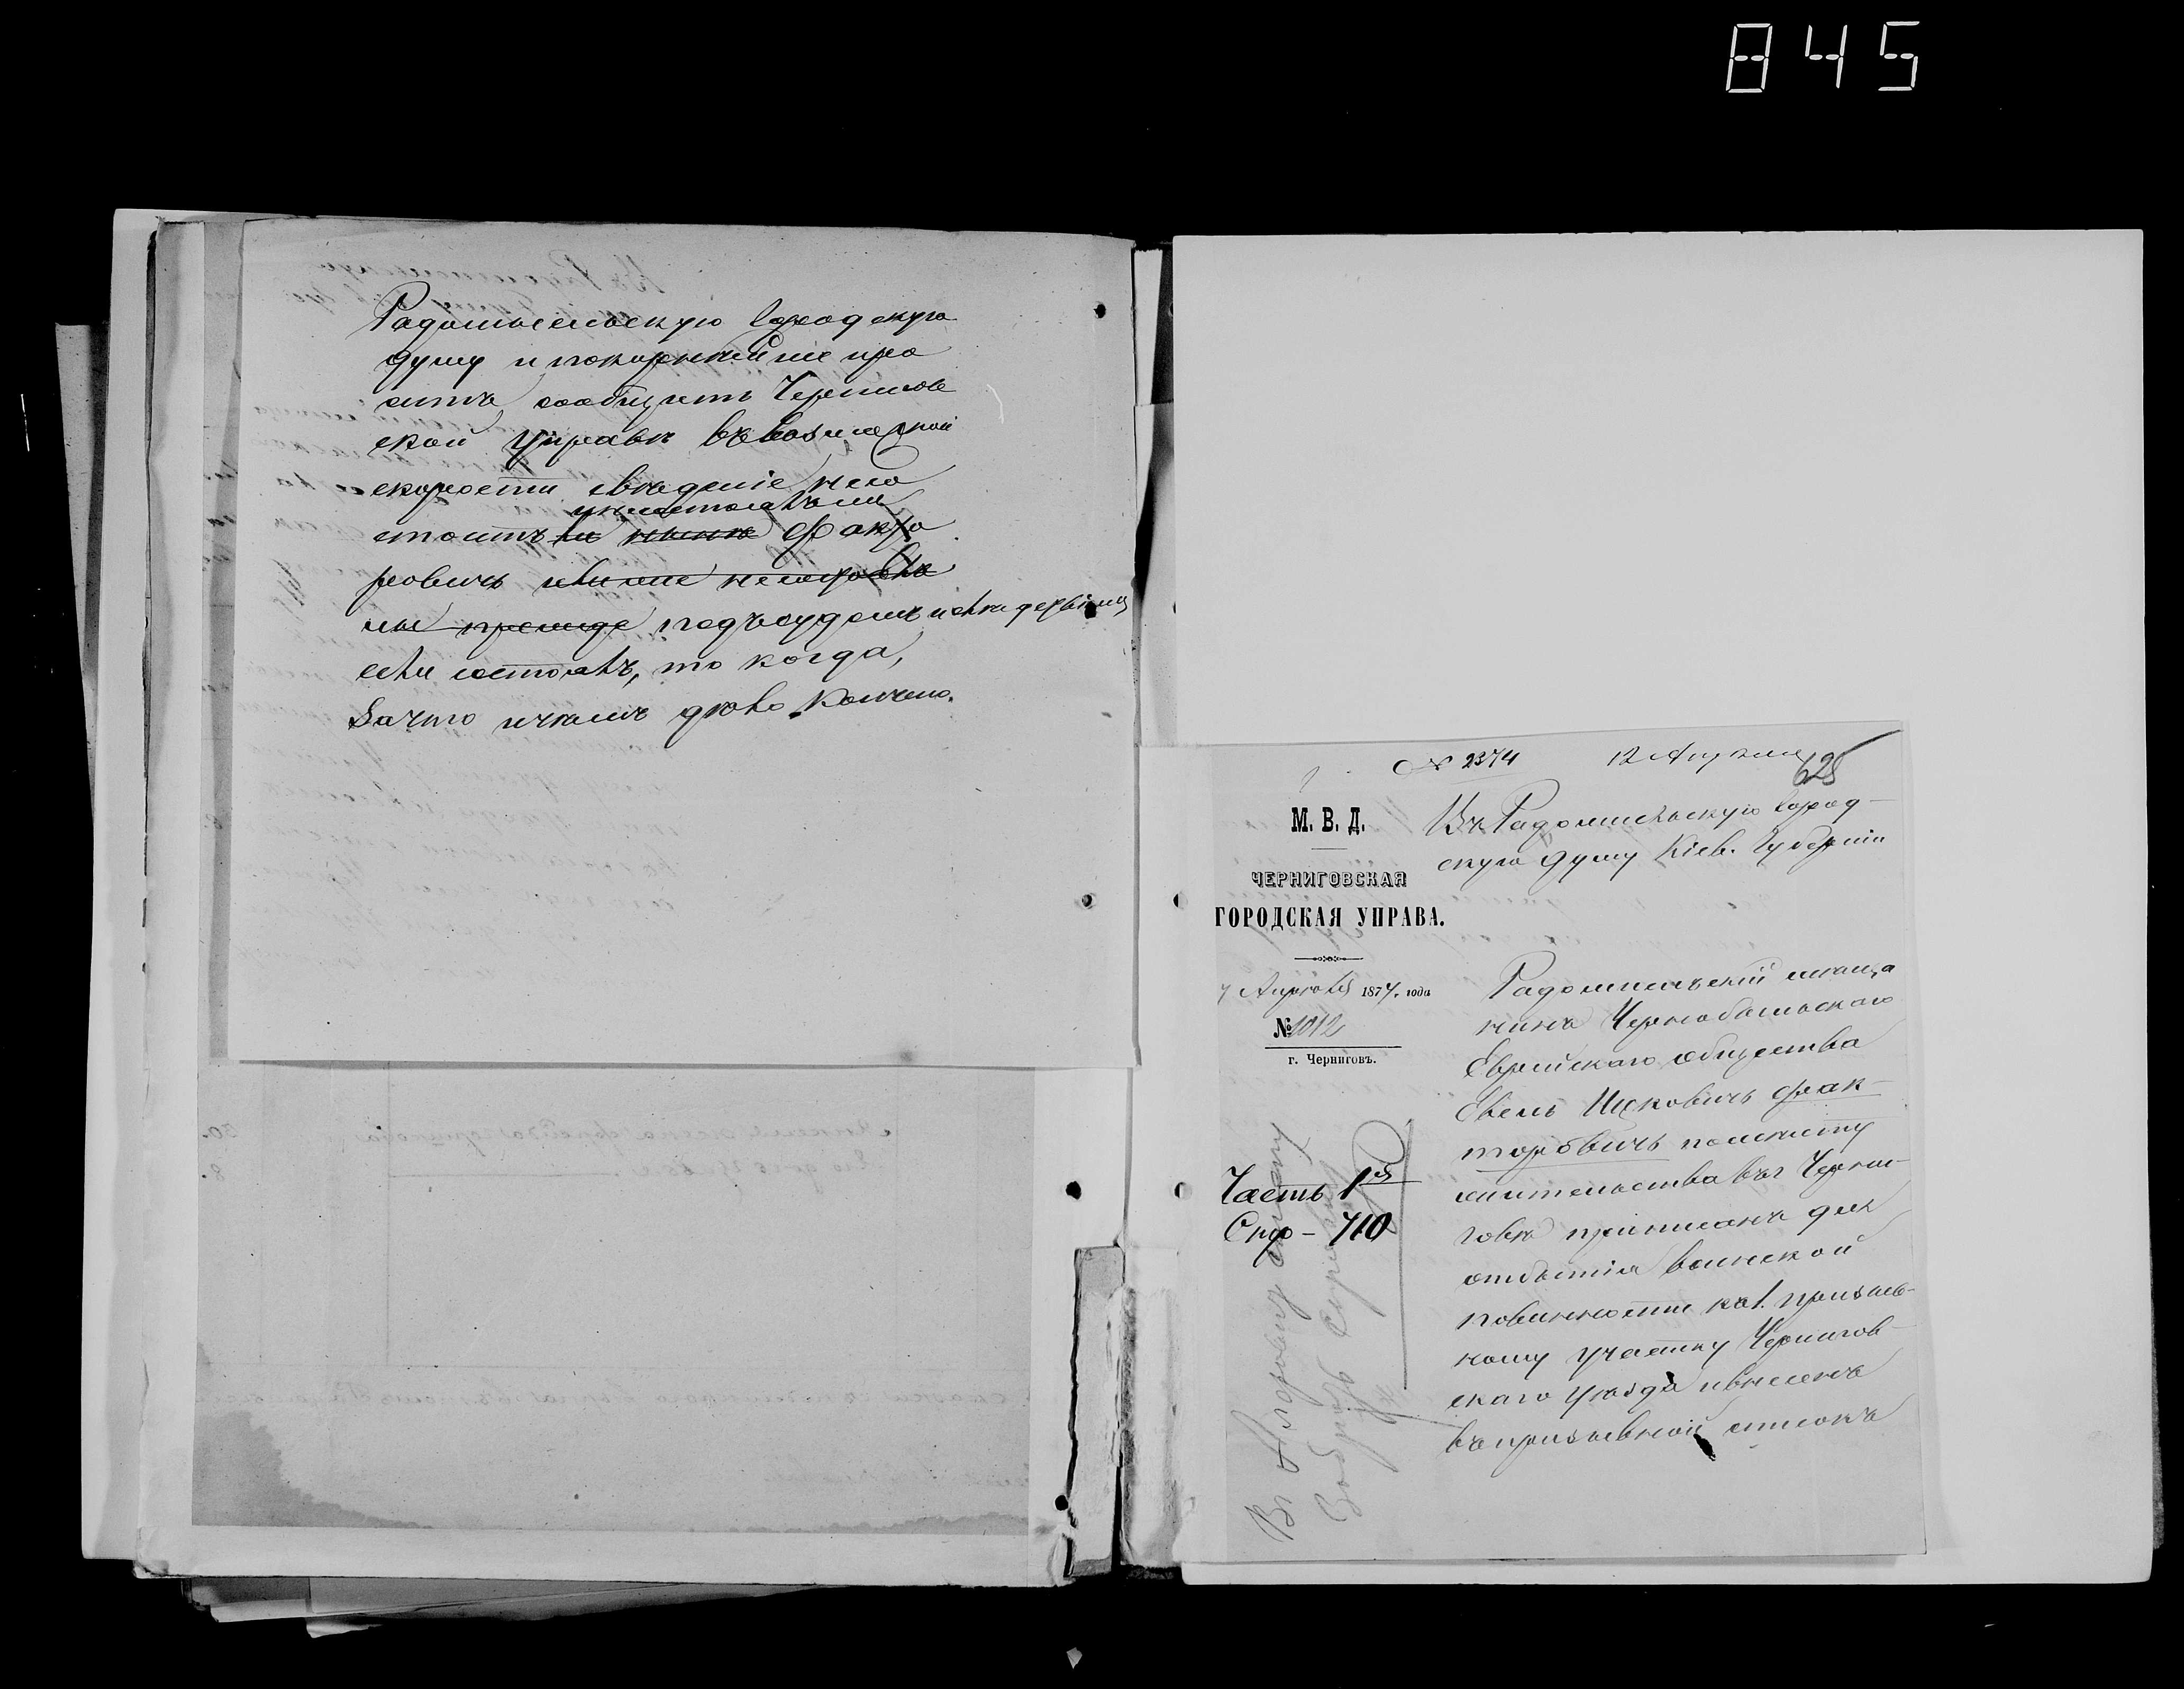 845
Радомысльскую Город скую
думу и покорнейше про
ситъ сообщить Чернигов
ской Управѣ въ возможной
скорости свѣденіе, не со
стоитъ ли нынѣ Факто
ровичъ
прежде подъ судомъ и слѣдствіемъ
если состоялъ, то когда,
за что и чѣмъ дѣло кончено.
№ 2374 12 Апрѣля
625
М. В. Д.
ЧЕРНИГОВСКАЯ
ГОРОДСКАЯ УПРАВА.
7 Апрѣля 1877. года
№ 1012
г. Черниговъ.
Часть 1я
Стр – 710
Въ Радомысльскую Город-
скую Думу Кіев. Губерніи
Радомысльскій мѣща
нинъ Чернобыльскаго
Еврейскаго общества
Евель Ицковичъ Фак-
торовичъ по мѣсту
жительства въ г Черни-
говѣ приписанъ для
отбытія воинской
повинности къ 1. призыв-
ному участку Чернигов-
скаго уѣзда и внесенъ
въ призывной списокъ